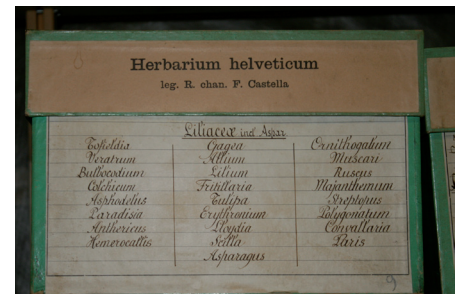 Herbarium helveticum
leg. R. chan. F. Castella
Liliaceæ incl Aspar
Tofieldia
Veratrum
Bulbocodium
Colchicum
Asphodelus
Paradisia
Anthericus
Hemerocallis
Gagea
Allium
Lilium
Fritillaria
Tulipa
Erythronium
Lloydia
Scilla
Asparagus
Ornithogalum
Muscari
Ruscus
Majanthemum
Streptopus
Polygonatum
Convallaria
Paris
9